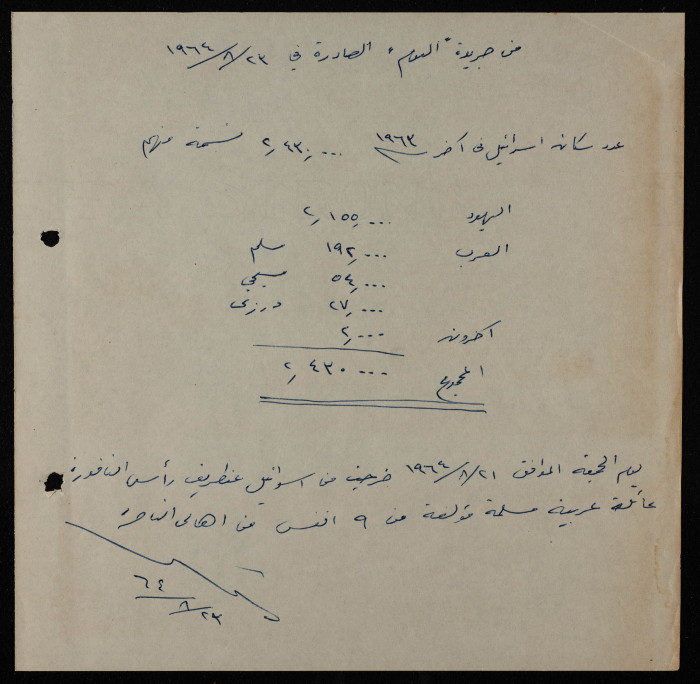 من جريدة "اليوم" الصادرة في ٢٣/٨/١٩٦٤
عدد سكان اسرائيل في آخر ١٩٦٣ ٢,٤٣٠,٠٠٠ نسمة منهم
اليهود ٢,١٥٥,٠٠٠
العرب ١٩٢,٠٠٠ مسلم
٥٤,٠٠٠ مسيحي
٢٧,٠٠٠ درزي
آخرون ٢,٠٠٠
المجموع ٢,٤٣٠,٠٠٠
يوم الجمعة الموافق ٢١/٨/١٩٦٤ خرجت من اسرائيل عن طريق رأس الناقورة
عائلة عربية مسلمة مؤلفة من ٩ انفس من اهالي الناصرة
٦٤
٢٣/٨